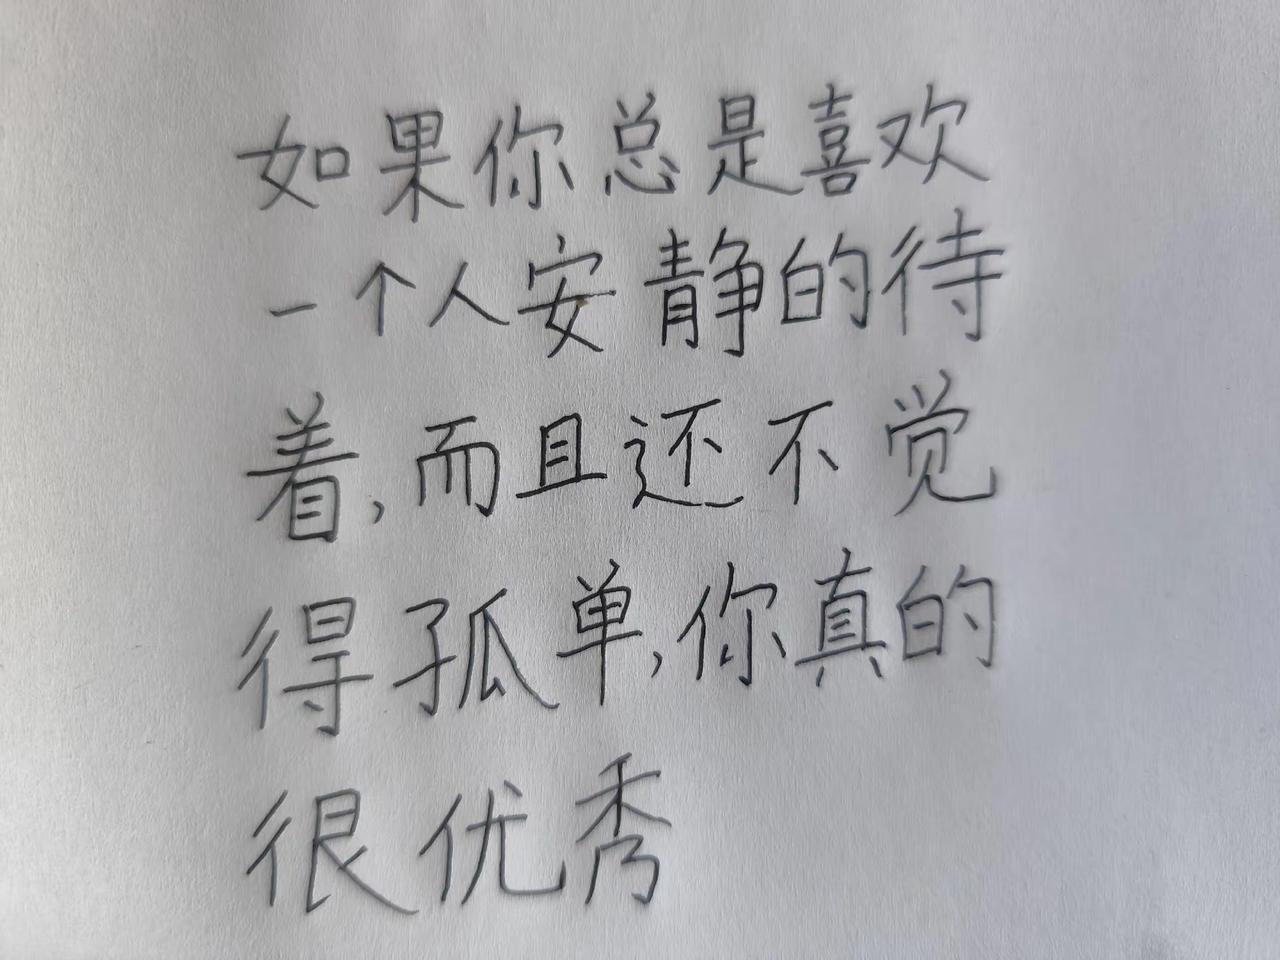 如果你总是喜欢
一个人安静的待
着,而且还不觉
得孤单,你真的
很优秀